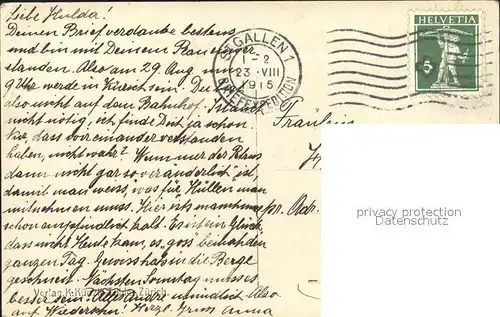 Liebe Hulda!
Deinen Brief verdanke bestens
und bin mit Deinem Plan einver
standen. Also am 29 Aug. um
9 Uhr werde in Zürich sein. Du
also nicht auf dem Bahnhof.
nicht nötig, ich finde Dich ja schon.
dass wir einander verstanden
haben, nicht wahr? Wenn nur der
dann nicht gar so veränderlich ist,
damit man weiss, was für Hüllen man
mitnehmen muss. Hier ists manchmal
schon empfindlich kalt. Es ist ein Glück,
dass nicht Heute kam, es goss beinah den
ganzen Tag. Gewiss hats in die Berge
geschneit. Nächsten Sonntag muss es
besser sein! Alles Andre mündlich. Also
auf Wiedersehn! Herzl. Gruss Anna
Zürich
ST. GALLEN 1
1-2
23.VIII
1915
BRIEFEXPEDITION
HELVETIA
5
Fräulein
privacy protection
Datenschutz